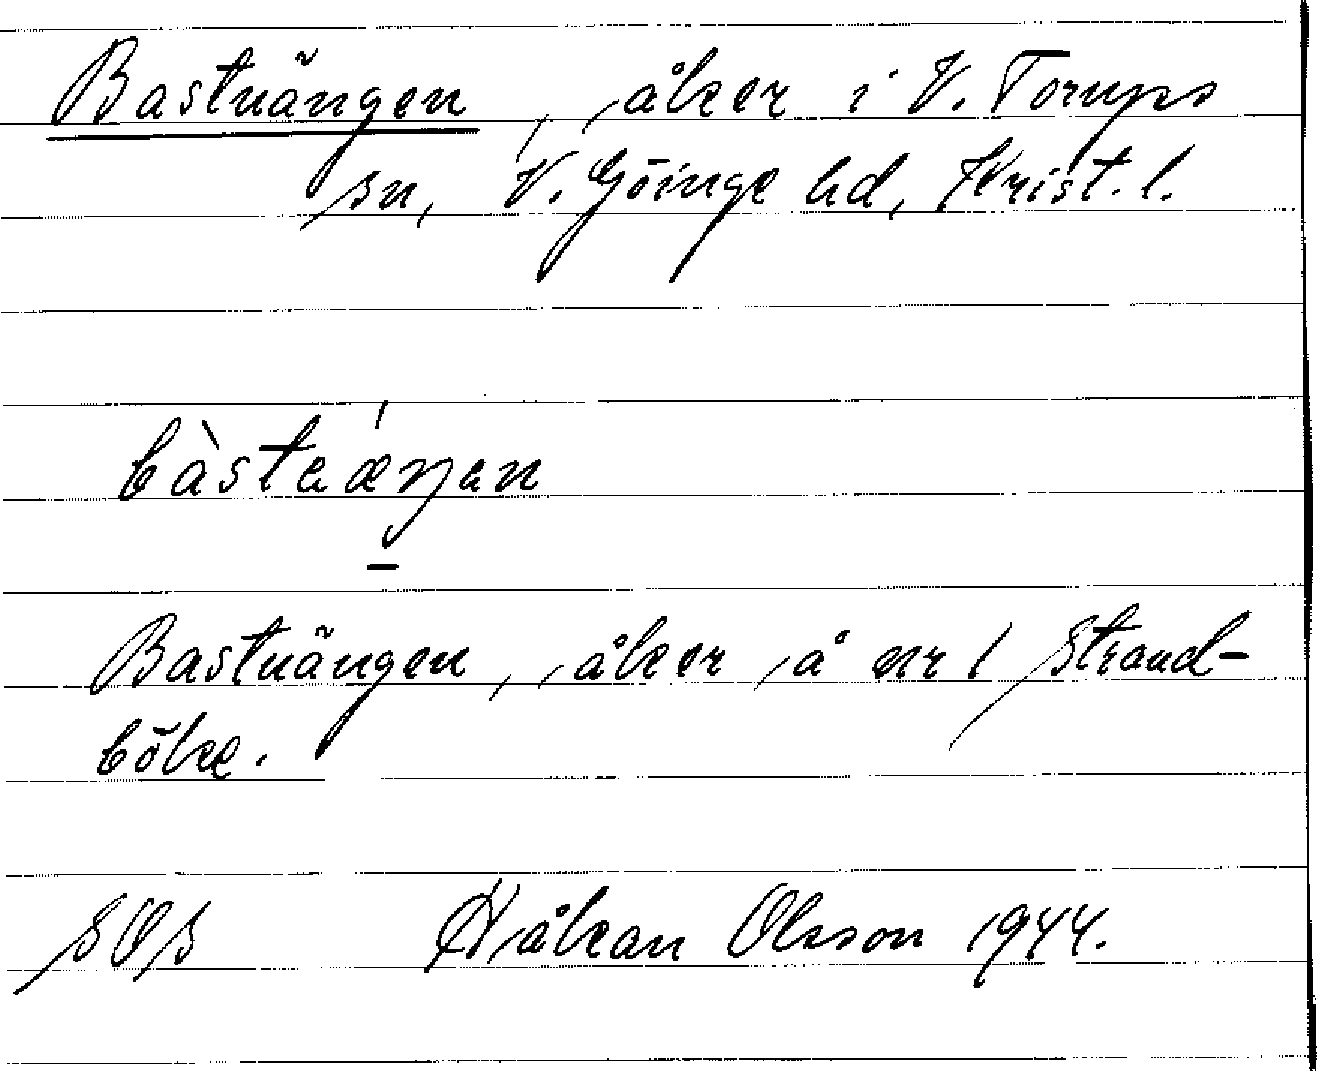 Bastuängen, åker i V. Torups
sn, V. Göinge hd, Krist. l.
bàstaæŋan
Bastuängen, åker å nr 1 Strand-
böke.
SOS Håkan Olsson 1944.